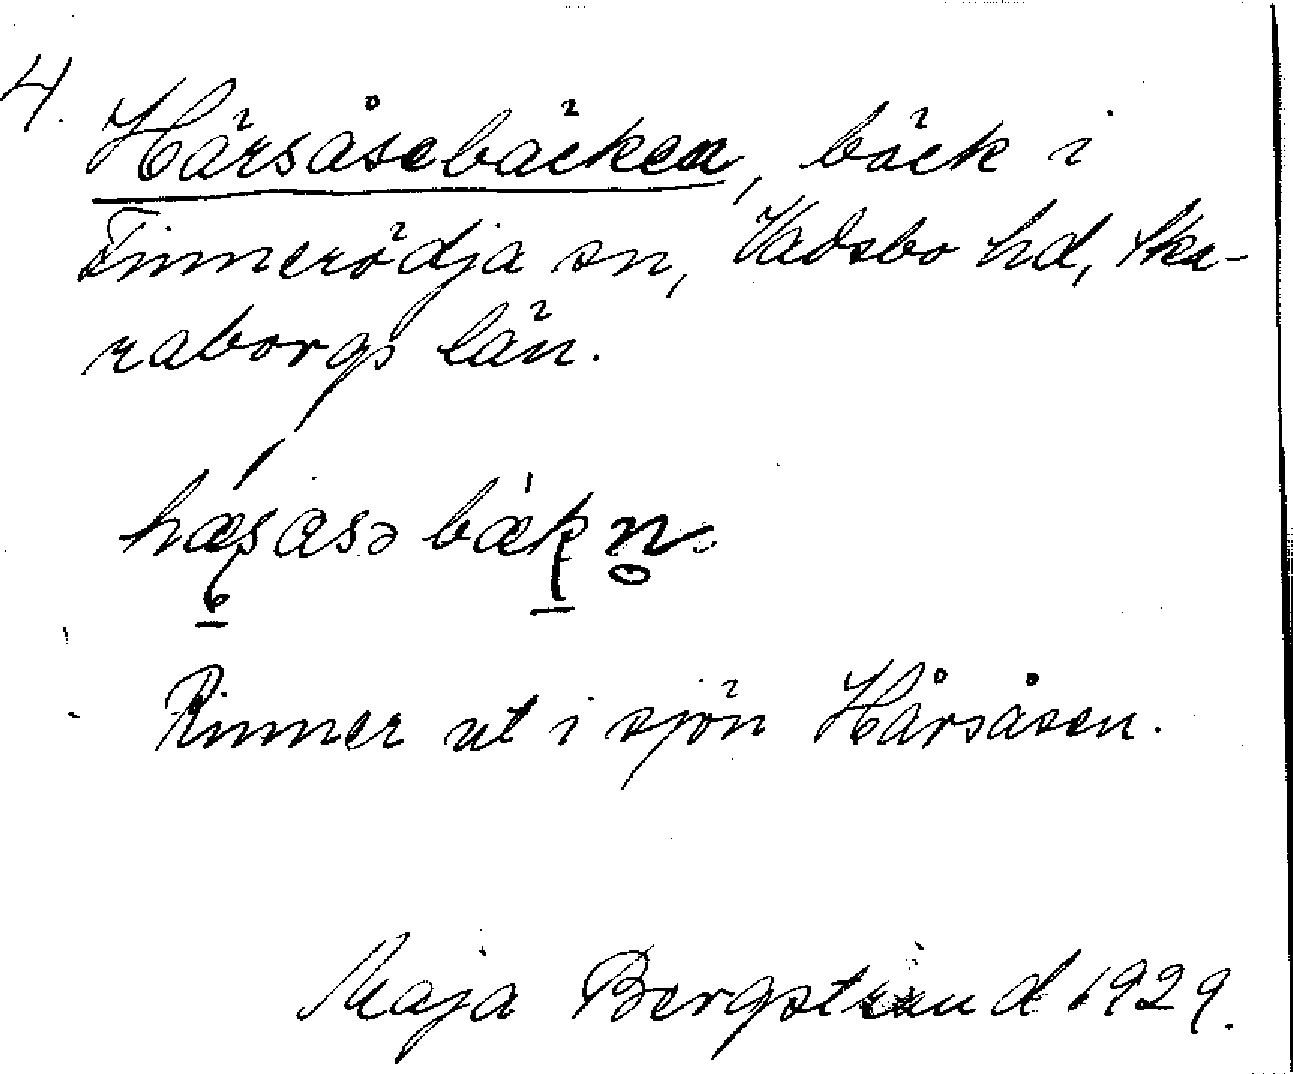 4.
Härsåsebäcken, bäck i
Finnerödja sn, Vadsbo hd, Ska-
raborgs län.
Rinner ut i sjön Hårsåsen.
Maja Bergstrand 1929.